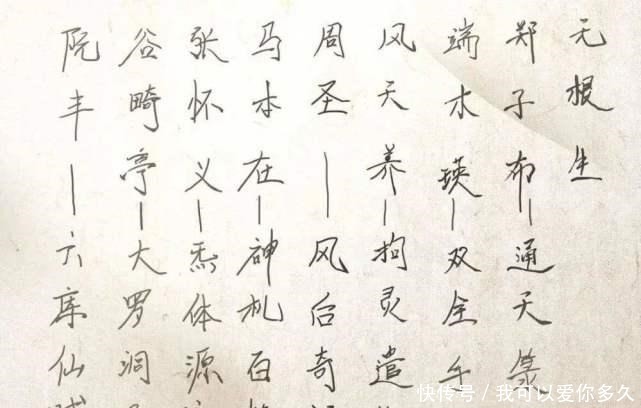 无根生
郑子布—通天箓
端木瑛—双全手
风天养—拘灵遣
周圣—风后奇
马本在—神机百
张怀义—炁体源
谷畸亭—大罗洞
阮丰—六库仙
快传号 / 我可以爱你多久